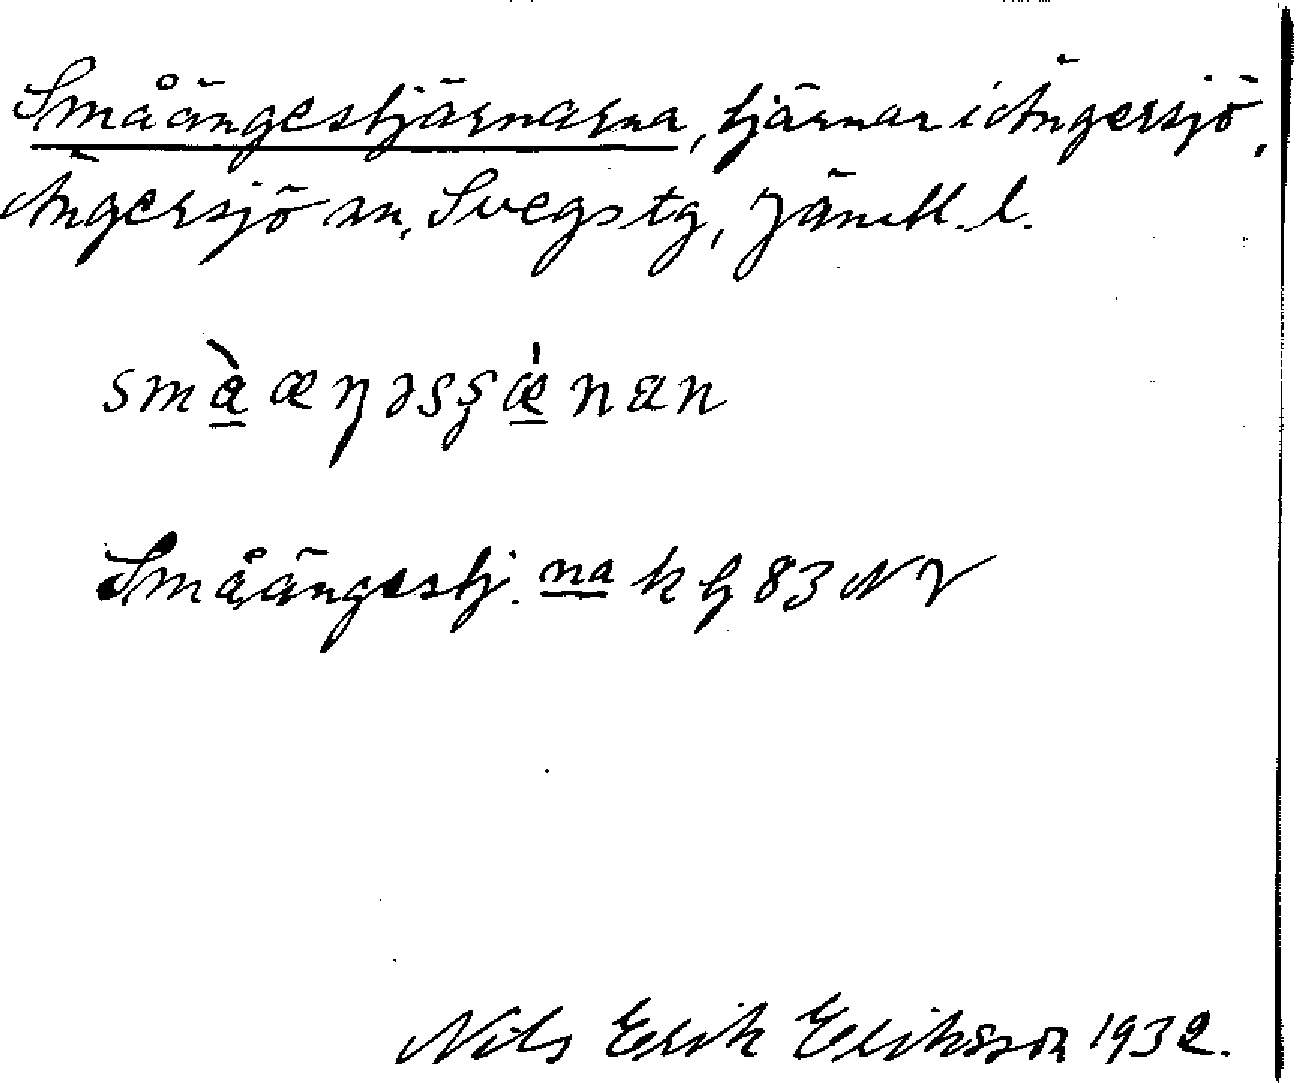 Småängestjärnarna, tjärnar i Ängersjö,
Ängersjö sn, Svegs tg, Jämtl. l.
smàæŋəsʂǽnan
Småängestj. na k bg 83 NV
Nils Erik Eriksson 1932.